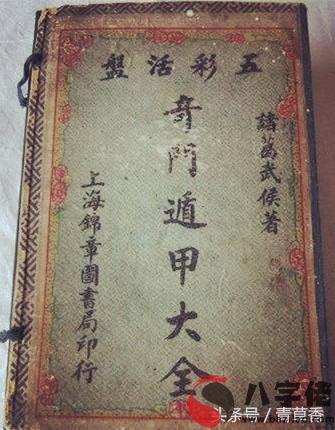 盤活彩五
諸葛武侯著
奇門遁甲大全
上海錦章圖書局印行
八字佬
头条号 / 青草香